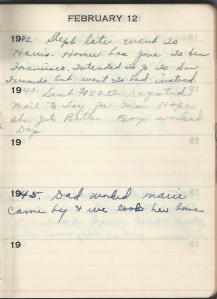 FEBRUARY 12
1942. Steph late went to
Harris - Homer has gone to San
Francisco. Intended to go to San
Fernando but went to bed instead
Sent $50.00 registered
Mail to Loy for Hope
she gets Better worked
Day
19
1945. Dad worked marie
came by & we took her home
19